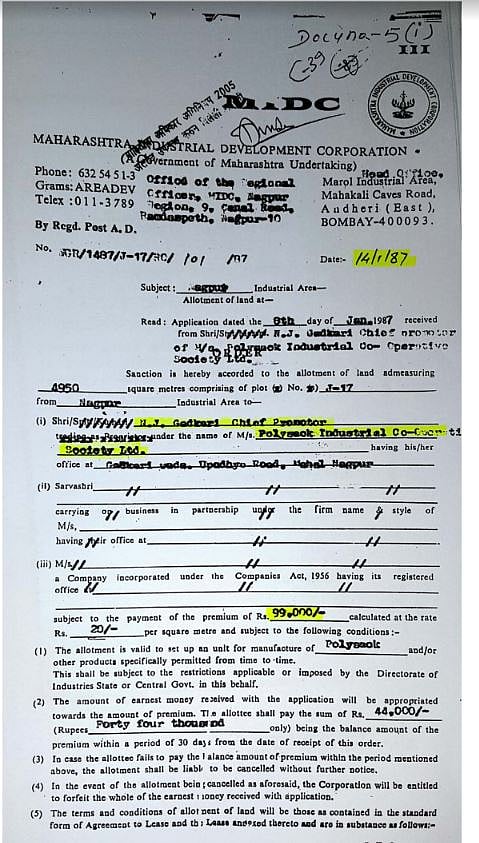 Docyna-5(i)
III
(-39
MIDC
MAHARASHTRA INDUSTRIAL DEVELOPMENT CORPORATION
(Government of Maharashtra Undertaking)
Phone: 632 54 51-3
Grams: AREADEV
Telex : 011-3789
By Regd. Post A. D.
Office of the Regional
Officer, MIDC, Nagpur
Region, 9, Canal Road,
Ramdaspeth, Nagpur-10
Head Office,
Marol Industrial Area,
Mahakali Caves Road,
Andheri (East),
BOMBAY-400093.
No. /1487/J-17/ /01 /87
Date:- 14/1/87
Subject : Nagpur Industrial Area—
Allotment of land at—
Read : Application dated the 8th day of Jan.1987 received
from Shri/ N.J. Gadkari Chief promotor
of M/s. Polysack Industrial Co- Operative
Society Ltd.
ORDER
Sanction is hereby accorded to the allotment of land admeasuring
4950 square metres comprising of plot (s) No. (s) J-17
from Nagpur Industrial Area to—
(i) Shri/ N.J. Gadkari Chief Promotor
trading as Proprietor under the name of M/s. Polysack Industrial Co-Operati
Society Ltd. having his/her
office at Gadkari wada, Upadhye Road, Mahal Nagpur
(ii) Sarvashri // // //
carrying on business in partnership under the firm name & style of
M/s,
having their office at // //
(iii) M/s // // //
a Company incorporated under the Companies Act, 1956 having its registered
office //
subject to the payment of the premium of Rs. 99,000/- calculated at the rate
Rs. 20/- per square metre and subject to the following conditions :-
(1) The allotment is valid to set up an unit for manufacture of Polysack and/or
other products specifically permitted from time to time.
This shall be subject to the restrictions applicable or imposed by the Directorate of
Industries State or Central Govt. in this behalf.
(2) The amount of earnest money received with the application will be appropriated
towards the amount of premium. The allottee shall pay the sum of Rs. 44,000/-
(Rupees Forty four thousand only) being the balance amount of the
premium within a period of 30 days from the date of receipt of this order.
(3) In case the allottee fails to pay the balance amount of premium within the period mentioned
above, the allotment shall be liable to be cancelled without further notice.
(4) In the event of the allotment being cancelled as aforesaid, the Corporation will be entitled
to forfeit the whole of the earnest money received with application.
(5) The terms and conditions of allotment of land will be those as contained in the standard
form of Agreement to Lease and the Lease annexed thereto and are in substance as follows:-